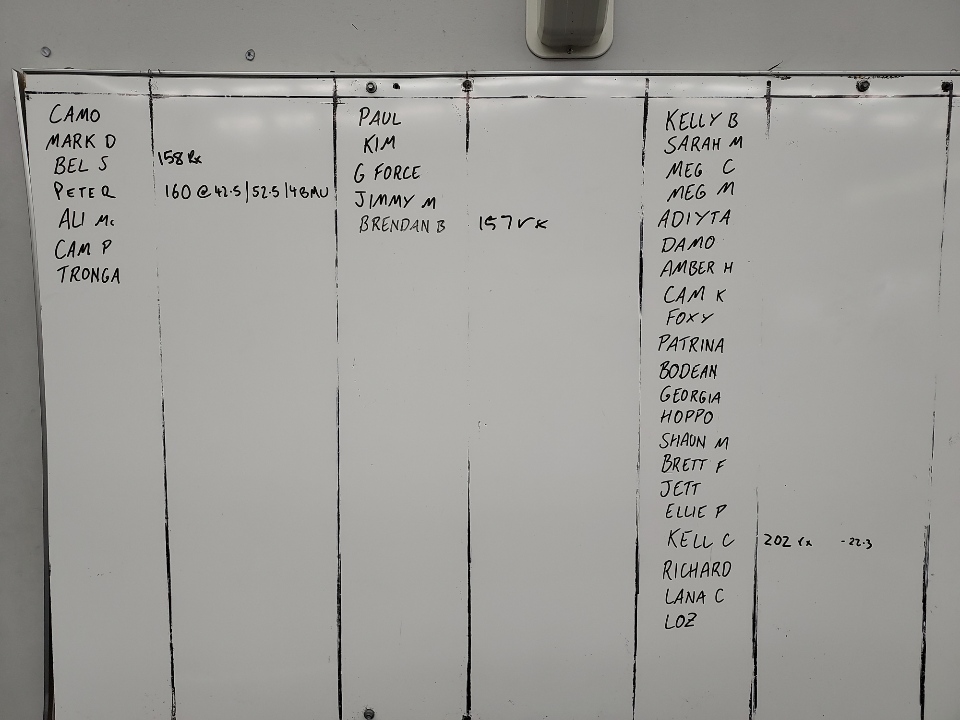 CAMO
MARK D
BEL S 158 Rx
PETE R 160 @ 42.5/52.5/4BMU
ALI Mc
CAM P
TRONGA
PAUL
KIM
G FORCE
JIMMY M
BRENDAN B 157 rx
KELLY B
SARAH M
MEG C
MEG M
ADIYTA
DAMO
AMBER H
CAM K
FOXY
PATRINA
BODEAN
GEORGIA
HOPPO
SHAUN M
BRETT F
JETT
ELLIE P
KELL C 202 rx -22.3
RICHARD
LANA C
LOZ